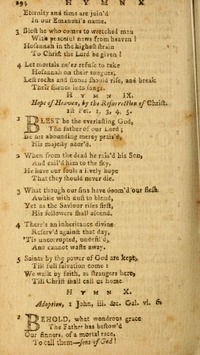 294 H Y M N X
Eternity and time are join'd
In our Emanuel's name.
3 Blest he who comes to wretched man
With peaceful news from heaven!
Hosannah in the highest strain
To Christ the Lord be given!
4 Let mortals ne'er refuse to take
Hosannah on their tongues,
Lest rocks and stones should rise, and break
Their silence into songs.
H Y M N IX.
Hope of Heaven, by the Resurrection of Christ.
1st Pet. 1, 3, 4, 5.
BLEST be the everlasting God,
The father of our Lord;
Be his abounding mercy prais'd,
His majesty ador'd.
2 When from the dead he rais'd his Son,
And call'd him to the sky,
He gave our souls a lively hope
That they should never die.
3 What though our sins have doom'd our flesh
to dust to blend,
Yet as the Saviour rises first,
His followers shall ascend.
4 There's an inheritance divine
Reserv'd against that day,
'Tis uncorrupted, undefil'd,
And cannot waste away.
5 Saints by the power of God are kept,
Till full salvation come:
We walk by faith, as strangers here,
Till Christ shall call us home.
H Y M N X.
Adoption, 1 John, iii. &c. Gal. vi. 6
BEHOLD, what wondrous grace
The Father has bestow'd
On sinners, of a mortal race,
To call them—sons of God!